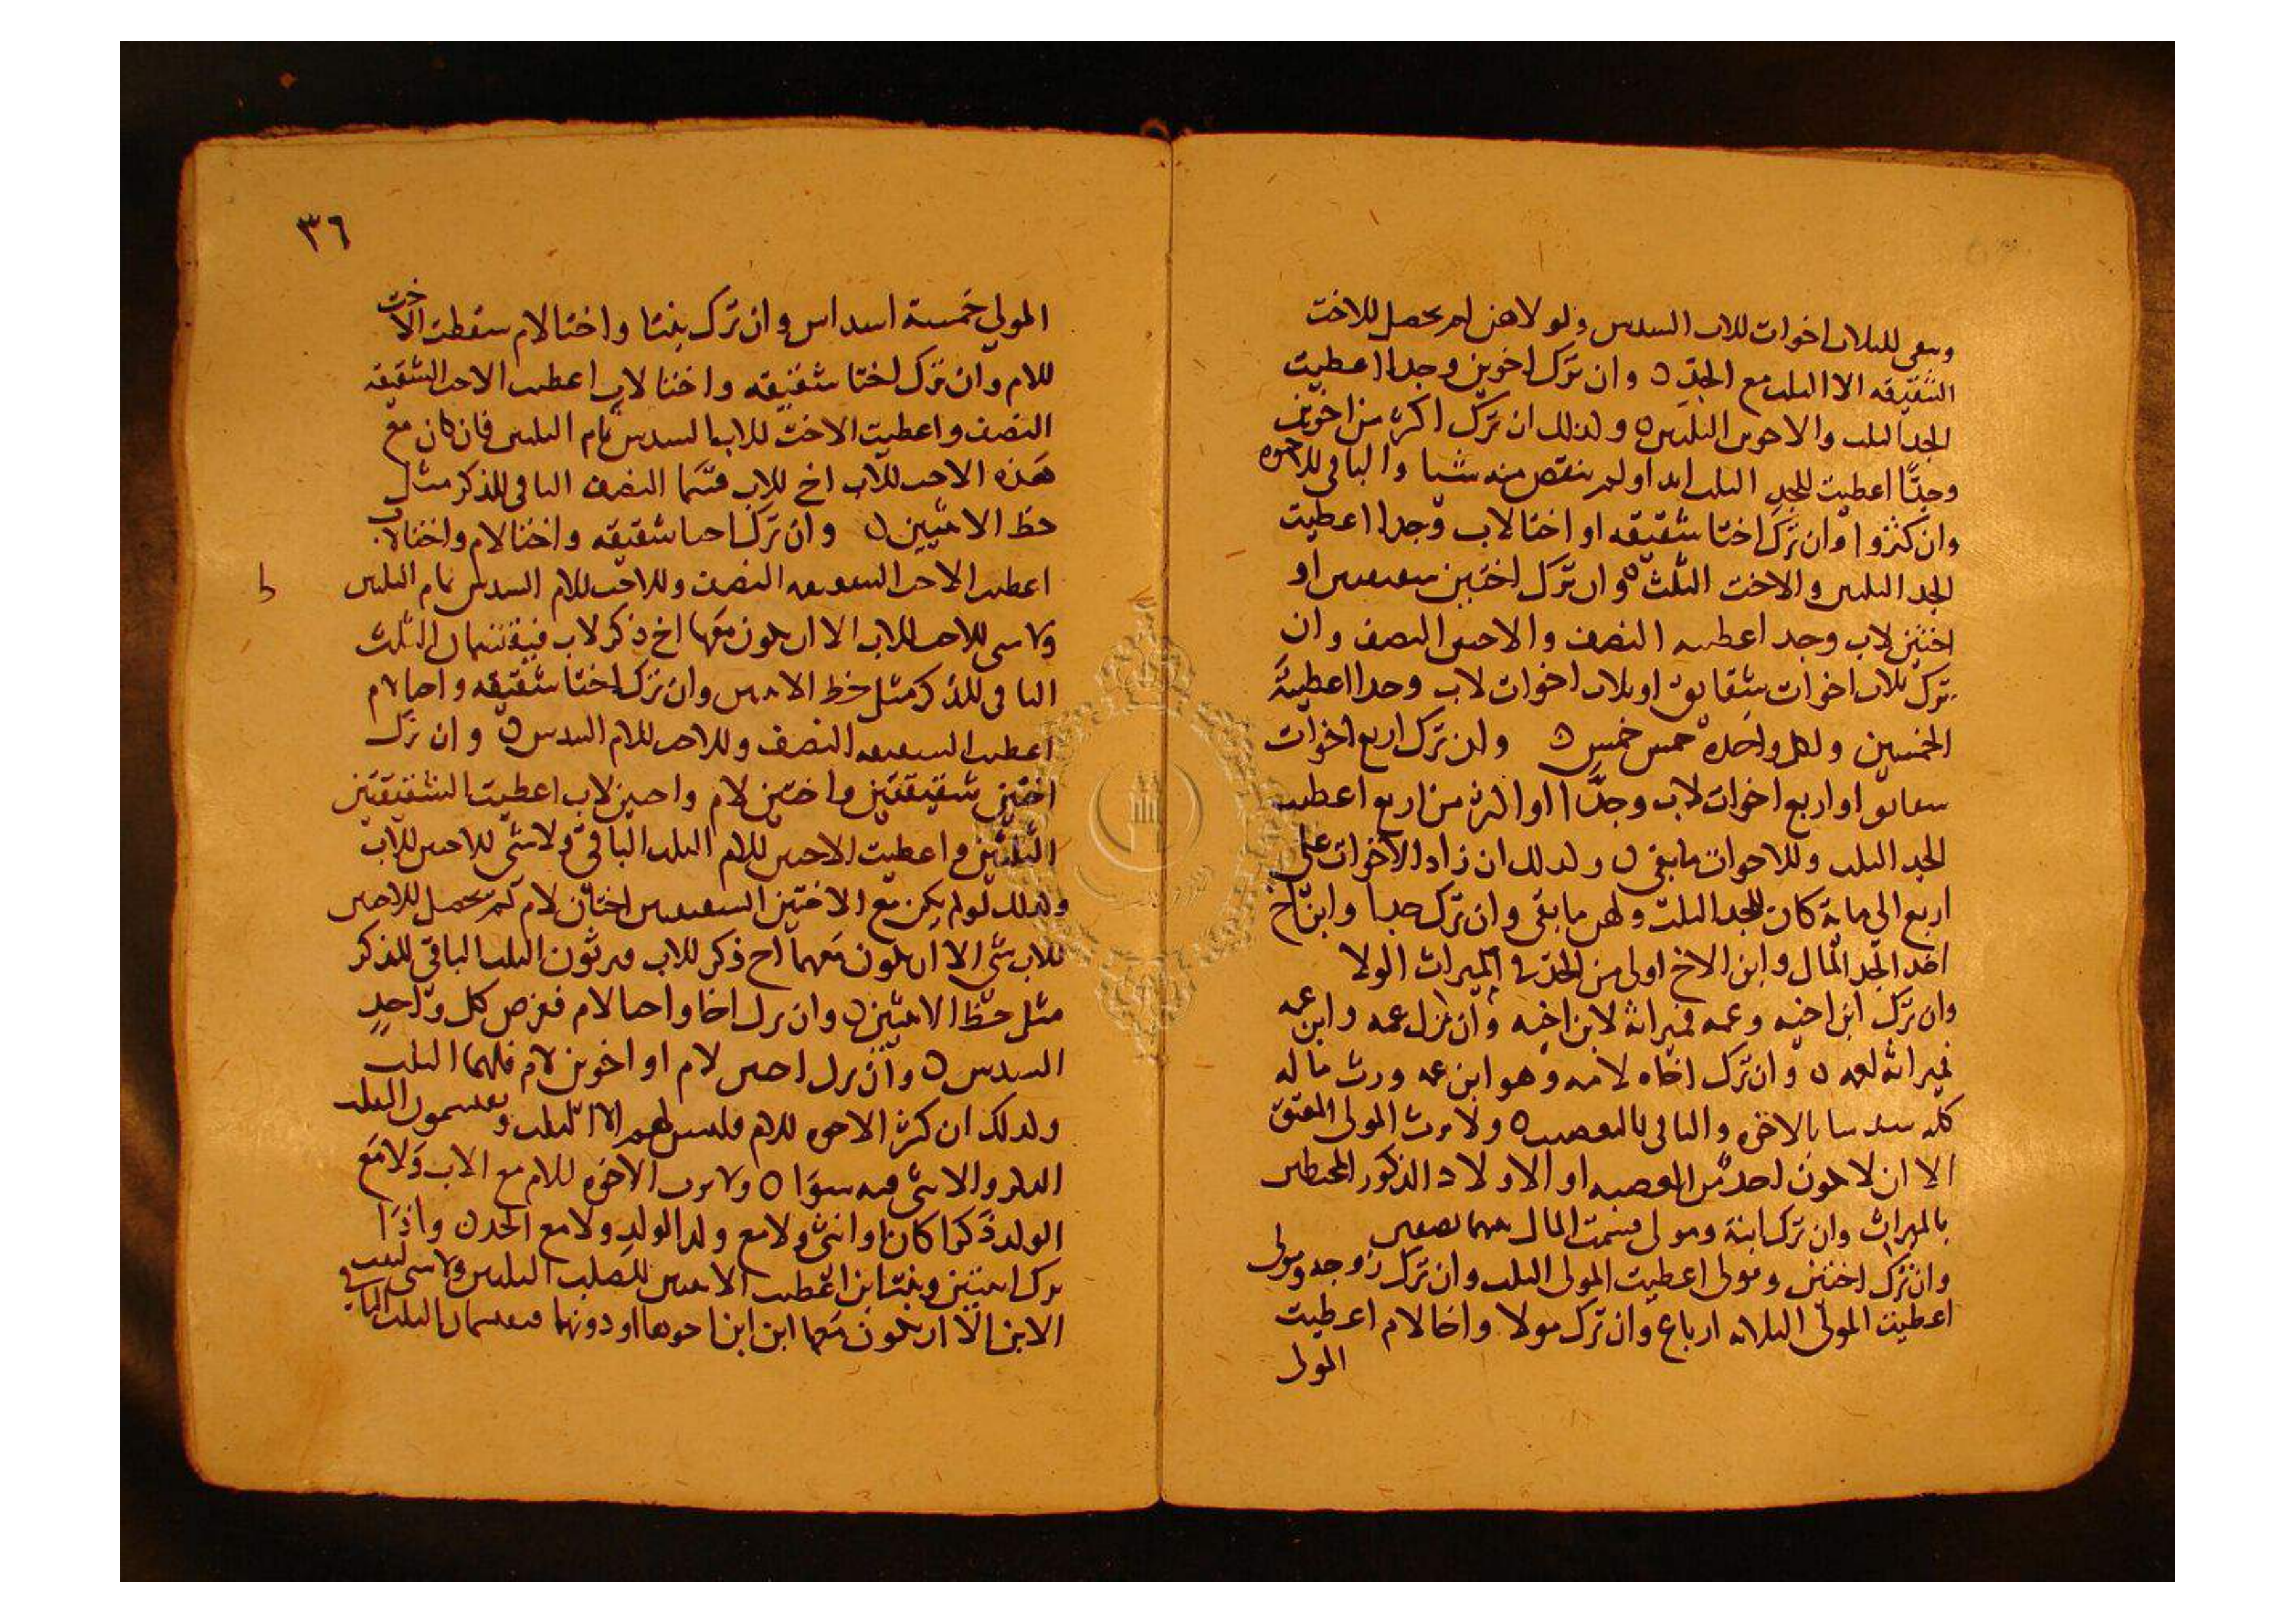 ويبقى للثلاث اخوات للاب السدس ولو لا هن لم يحصل للاخت
الشقيقه الا الثلث مع الجد ٥ وان ترك اخوين وجدا اعطيت
الجد الثلث والاخوين الثلثين ٥ وكذلك ان ترك اكثر من اخوين
وجدًّا اعطيت للجد الثلث ابدا ولم ينقص منه شيا والباقي للاخوه
وان كثروا وان ترك اختا شقيقه او اختا لاب وجدا اعطيت
الجد الثلثين والاخت الثلث ٥ وان ترك اختين شقيقتين او
اختين لاب وجد اعطيته النصف والاختين النصف وان
ترك ثلاث اخوات شقايق او ثلاث اخوات لاب وجدا اعطيتَهُ
الخمسين ولكل واحده خمس خمس ٥ وان ترك اربع اخوات
شقايق او اربع اخوات لاب وجدًّا او اكثر من اربع اعطيت
الجد الثلث وللاخوات ما بقى ٥ وكذلك ان زاد الاخوات على
اربع الى ماية كان للجد الثلث ولهن ما بقى وان ترك جدا وابن اخ
اخذ الجد المال وابن الاخ اولى من الجد في الميراث الولا
وان ترك ابن اخيه وعمه فميراثه لابن اخيه وان ترك عمه وابن عمه
فميراثه لعمه ٥ وان ترك اخاه لامه وهو ابن عمه ورث ماله
كله سدسا بالاخوه والباقي بالتعصيب ٥ ولا يرث المولى المعتق
الا ان لا يكون احد من العصبه او الاولاد الذكور المحيطين
بالميراث وان ترك ابنة ومولى قسمت المال بينهما نصفين
وان ترك اختين ومولى اعطيت المولى الثلث وان ترك زوجه ومولى
اعطيت المولى الثلاثه ارباع وان ترك مولا واخا لام اعطيت
المولى
٣٦
المولي خمسة اسداس وان ترك بنتا واختا لام سقطت الاخت
للام وان ترك اختا شقيقه واختا لاب اعطيت الاخت الشقيقه
النصف واعطيت الاخت للاب السدس تمام الثلثين فان كان مع
هذه الاخت للاب اخ للاب قسما النصف الباقي للذكر مثل
حظ الانثيين ٥ وان ترك اختا شقيقه واختا لام واختا لاب
اعطيت الاخت الشقيقه النصف وللاخت للام السدس تمام الثلثين
ط
ولا شي للاخت للاب الا ان يكون معها اخ ذكر لاب فيقتسمان الثلث
الباقي للذكر مثل حظ الانثيين وان ترك اختا شقيقه واختا لام
اعطيت الشقيقه النصف وللاخت للام السدس ٥ وان ترك
اختين شقيقتين واختين لام واختين لاب اعطيت الشقيقتين
الثلثين واعطيت الاختين للام الثلث الباقي ولا شي للاختين للاب
وكذلك لو لم يكن مع الاختين الشقيقتين اختان لام لم يحصل للاختين
للاب شي الا ان يكون معهما اخ ذكر للاب فيرثون الثلث الباقي للذكر
مثل حظ الانثيين ٥ وان ترك اخا واختا لام ففرض كل واحدٍ
السدس ٥ وان ترك اختين لام او اخوين لام فلهما الثلث
وكذلك ان كثر الاخوه للام فليس لهم الا الثلث ويقسمون الثلث
الذكر والانثى فيه سوَا ٥ ولا يرث الاخوه للام مع الاب وَلا مَع
الولد ذكرا كان او انثى ولا مع ولد الولد ولا مع الجد ٥ واذَا
ترك ابنتين وبنت ابن اعطيت الابنتين للصلب الثلثين ولا شي لبنت
الابن الا ان يكون معها ابن ابن اخوها او دونها فيقتسمان الثلث الباقي